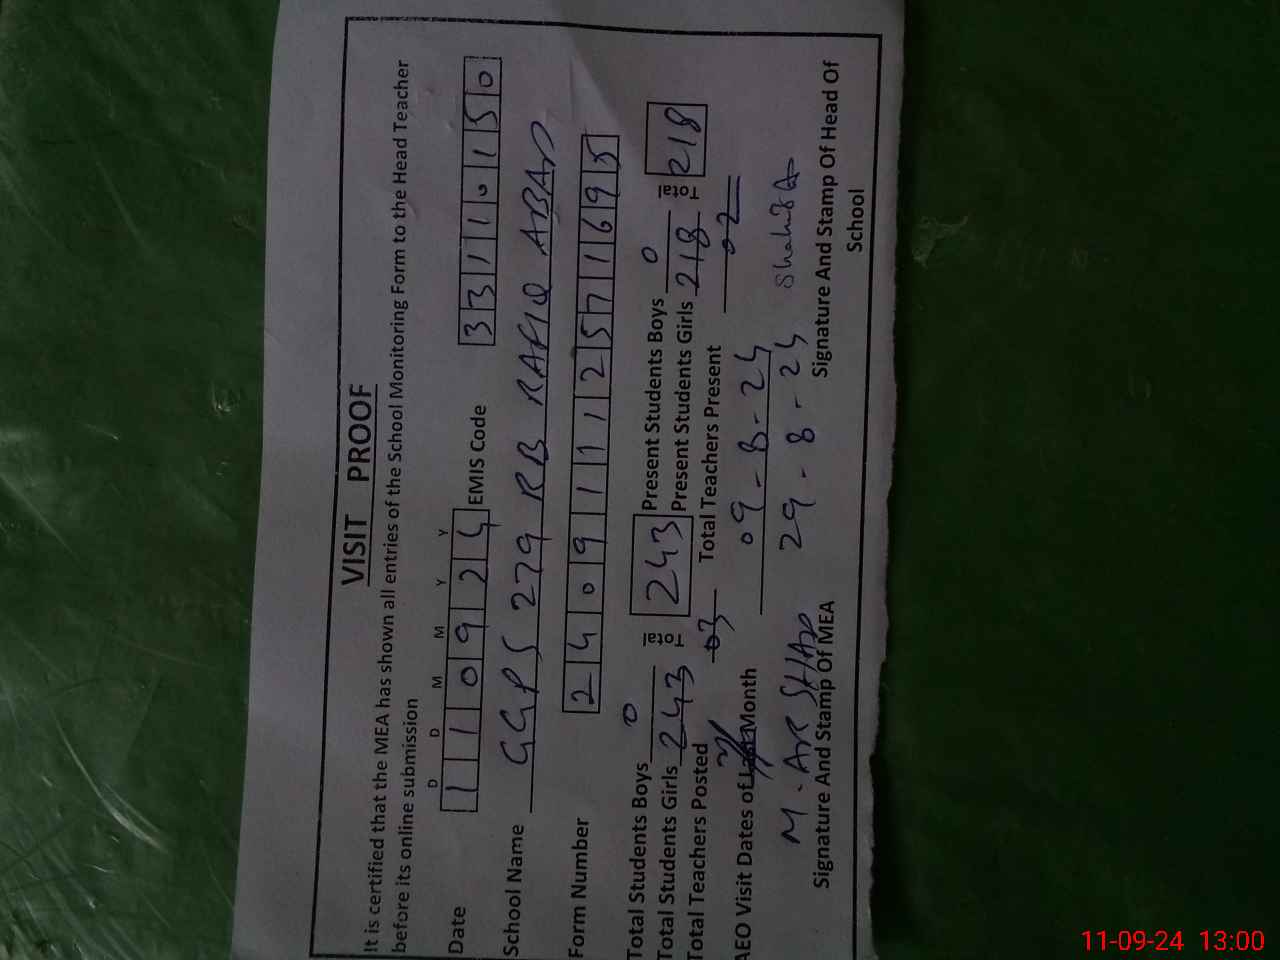 VISIT PROOF
It is certified that the MEA has shown all entries of the School Monitoring Form to the Head Teacher
before its online submission
D D M M Y Y
Date 110924 EMIS Code 33110150
School Name GGPS 279 RB RAFIQ ABAD
Form Number 24091112571695
Total Students Boys 0 Total 243 Present Students Boys 0 Total 218
Total Students Girls 243 Present Students Girls 218
Total Teachers Posted 03 Total Teachers Present 02
AEO Visit Dates of Month 09-8-24
29-8-24
M. ARSHAD Shahida
Signature And Stamp Of MEA Signature And Stamp Of Head Of
School
11-09-24 13:00